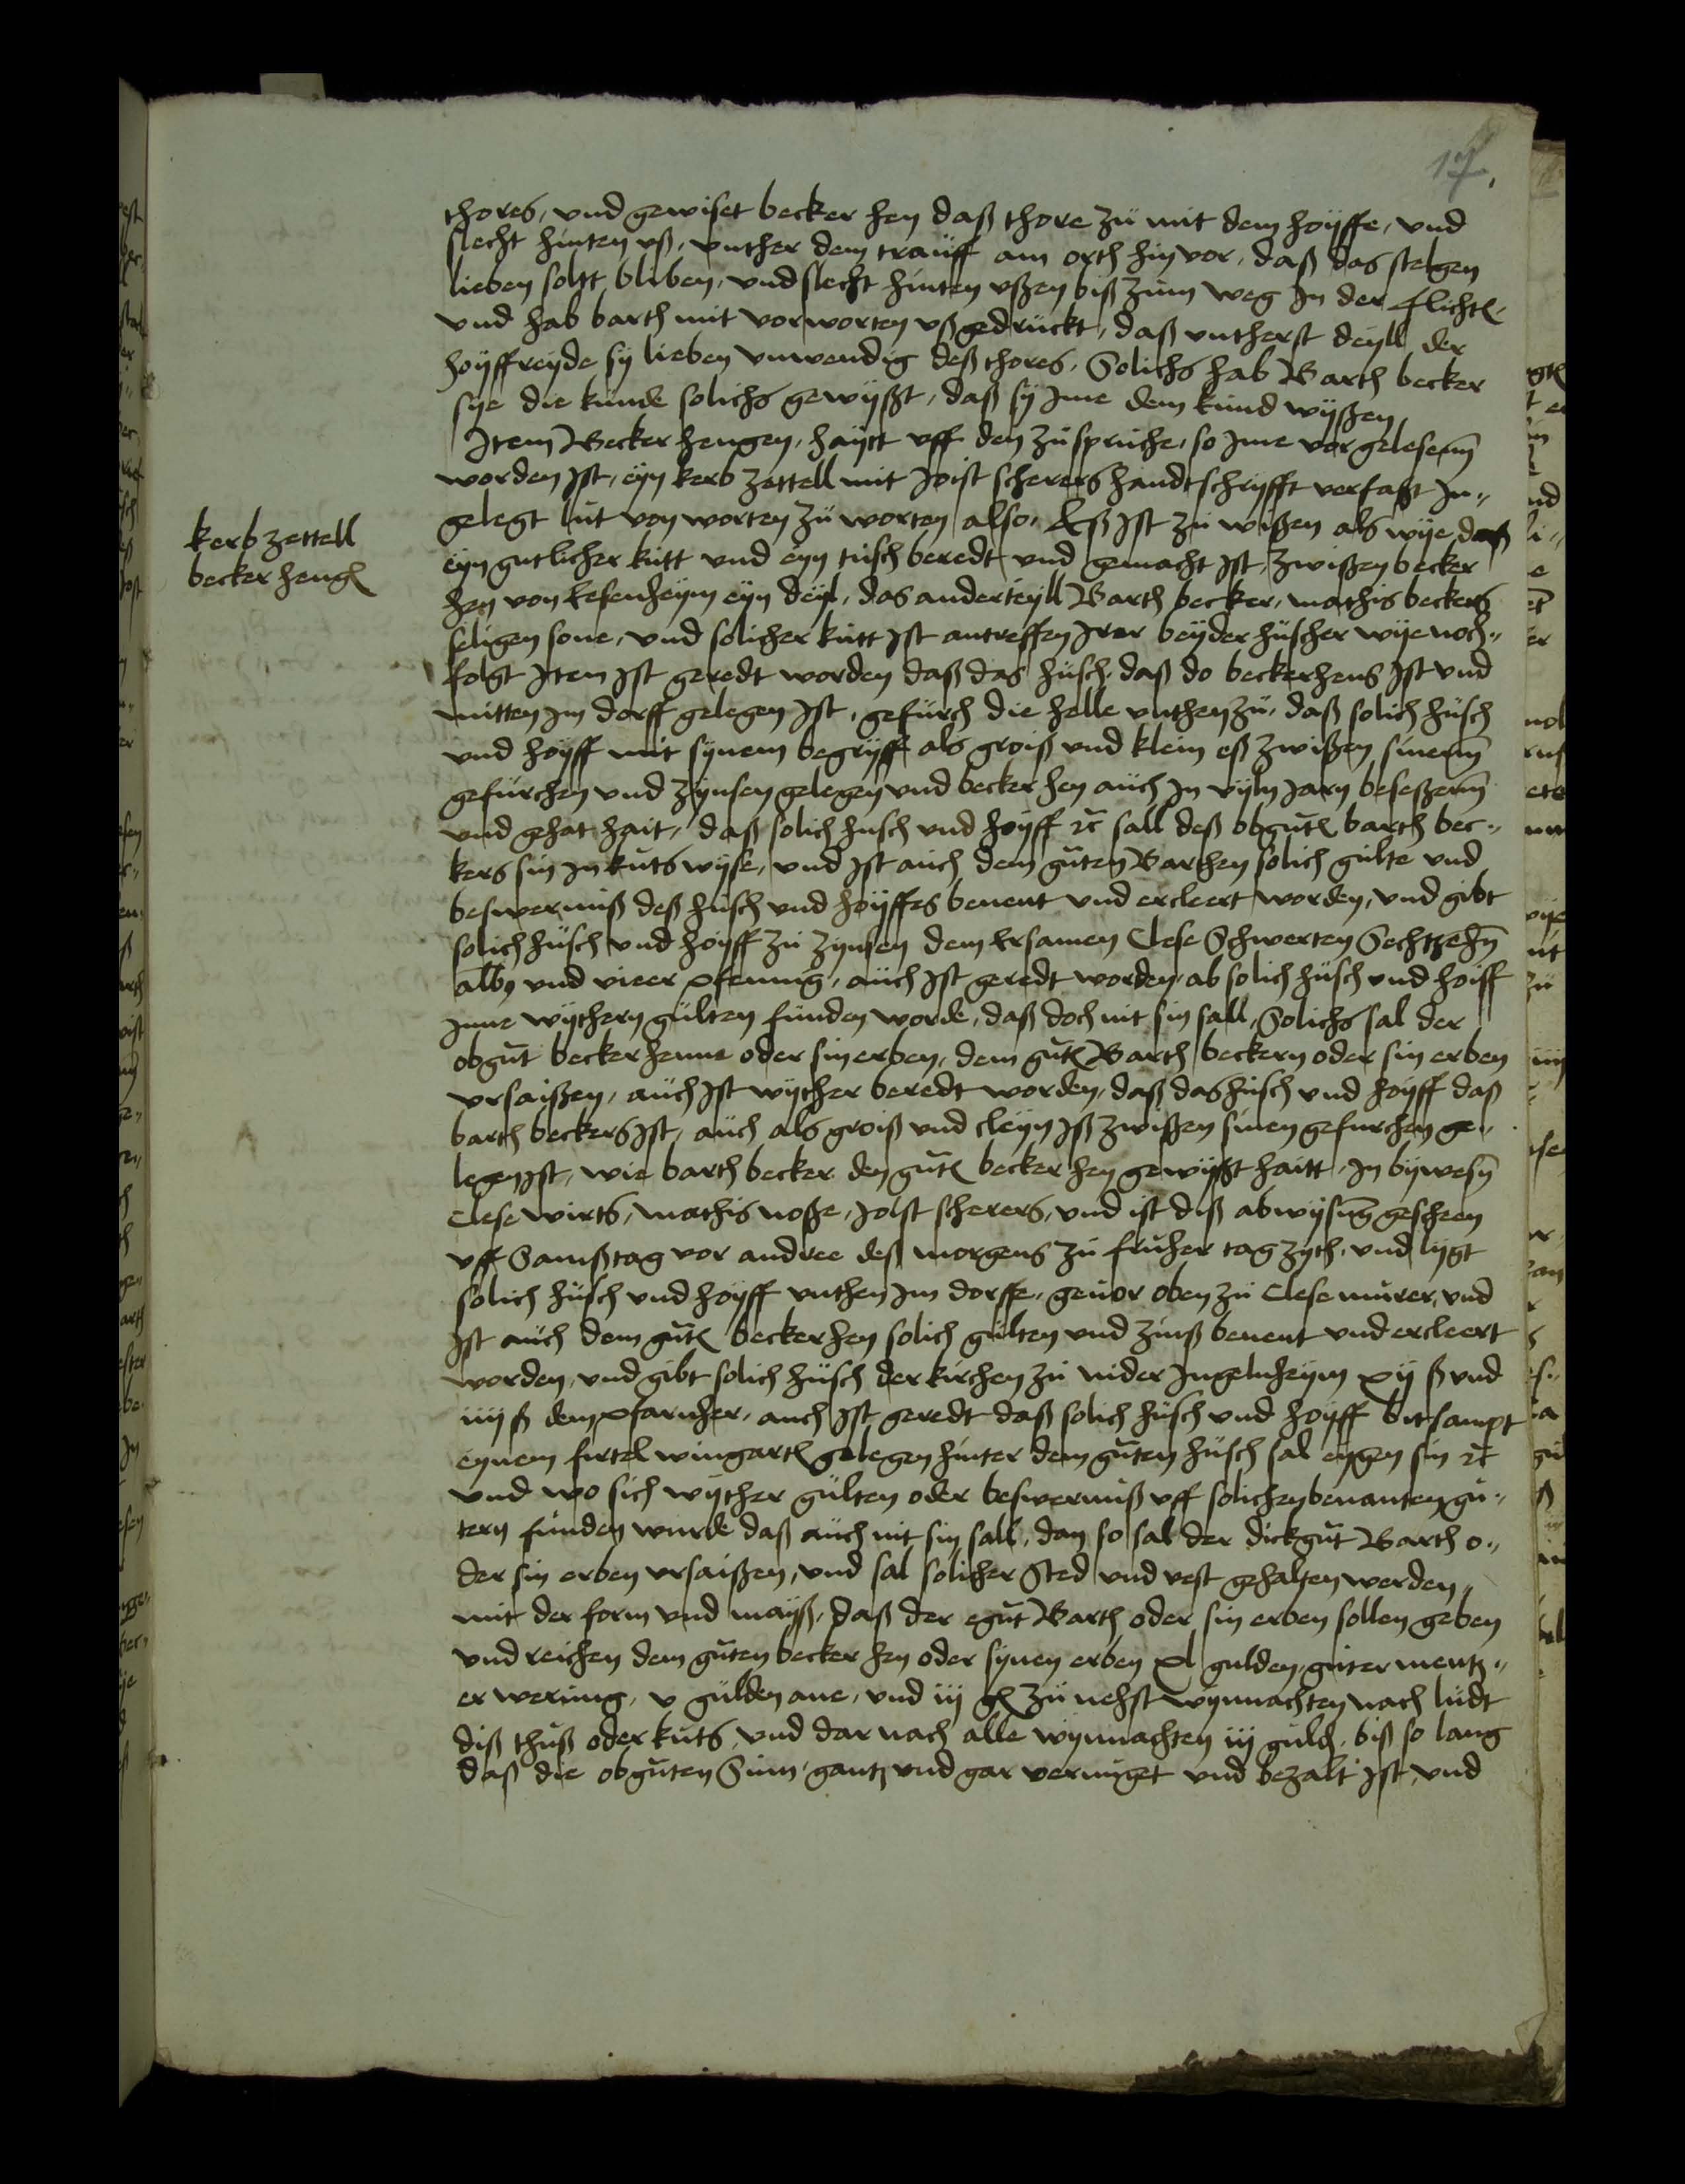 17.
thores, und gewiset becker hen daß thore zu mit dem hoyffe, und
slecht hinten uß, unther dem trauff am orth hin vor, daß das stelgen
lieben soltt bliben, und slecht hinten ußen biß zum weg in der flichten
und hab barth mit vorworten ußgedruckt, daß untherst deyll der
hoyffreyde sy lieben unwendig deß thores, Solichs hab Barth becker
sye die kunde solichs gewyßt, daß sy ime dem kund wyßen
Item Becker hengen, haytt uff den zuspruche, so ime vor gelesenn
worden ist, eyn kerb zettell mit Joist scherers handtschryfft verfaßt in„
gelegt lut von worten zu worten also, Eß ist zu wißen als wye, daß
eyn gutlicher kutt und eyn tusch beredt und gemacht ist, zwißen becker
hen von Esenheym eyn deyl, das anderteyll Barth becker, mathis beckers
seligen sone, und solicher kutt ist antreffen irer beyder huscher wye noch„
folgt Item ist geredt worden daß das husch, daß do beckerhens ist und
mitten im dorff gelegen ist, gefurch die helle unthen zu, daß solich husch
und hoyff mit synem begryff als groiß und klein eß zwißen sinenn
gefurchen und zynsen gelegen und becker hen auch in vyln jarn beseßenn
und gehat hait, daß solich husch und hoyff ꝛc sall deß obguten barth bec„
kers sin in kuts wyse, und ist auch dem guten Barthen solich gulte und
beswerniß deß husch und hoyffes benent und ercleert worden, und gibt
solich husch und hoyff zu zynsen dem Ersamen Clese Schwerten Sechtzehn
alb, und vieer pfennig, auch ist geredt worden, ab solich husch und hoiff
inne wythern gulten funden worde, daß doch nit sin sall, Solichs sal der
obgut becker henne oder sin erben, dem guten Barth beckern oder sin erben
ursaißen, auch ist wyther beredt worden, daß das husch und hoyff daß
barth beckers ist, auch als groiß und cleyn iß zwißen sinen gefurchen ge„
legen ist, wie barth becker den guten becker hen gewyßt haitt, in bywesen
Clese wirts, mathis noße, Joist scherers, und ist diß abwysung gescheen
uff Samßtag vor andree deß morgens zu fruher tag zyth, und lygt
solich husch und hoyff unthen im dorffe, gevor oben zu Clese murer, und
ist auch dem guten beckerhen solich gulten und zinß benent und ercleert
worden, und gibt solich husch der kirchen zu nider Ingelnheym xvij ß und
iiij ß dem pfarnher, auch ist geredt daß solich husch und hoyff bitsampt
eynem firtel wingarten gelegen hinter dem guten husch sal eygen sin ꝛc
und wo sich wyther gulten oder beswerniß uff solichen benanten gu„
tern funden wurde daß auch nit sin sall, dan so sal der dickgut Barth o„
der sin erben ursaißen, und sal solicher Sted und vest gehalten werden,
mit der form und mayß, daß der egut Barth oder sin erben sollen geben
und reichen dem guten becker hen oder synen erben xl gulden, guter mentz„
er werung, v gulden ane, und iij gl zu nehst wynnachten nach ludt
diß thuß oder kuts, und dar nach alle wynnachten iij guld, biß so lang
daß die obguten Sum, gantz und gar vernuget und bezalt ist, und
kerb zettell
becker hengen